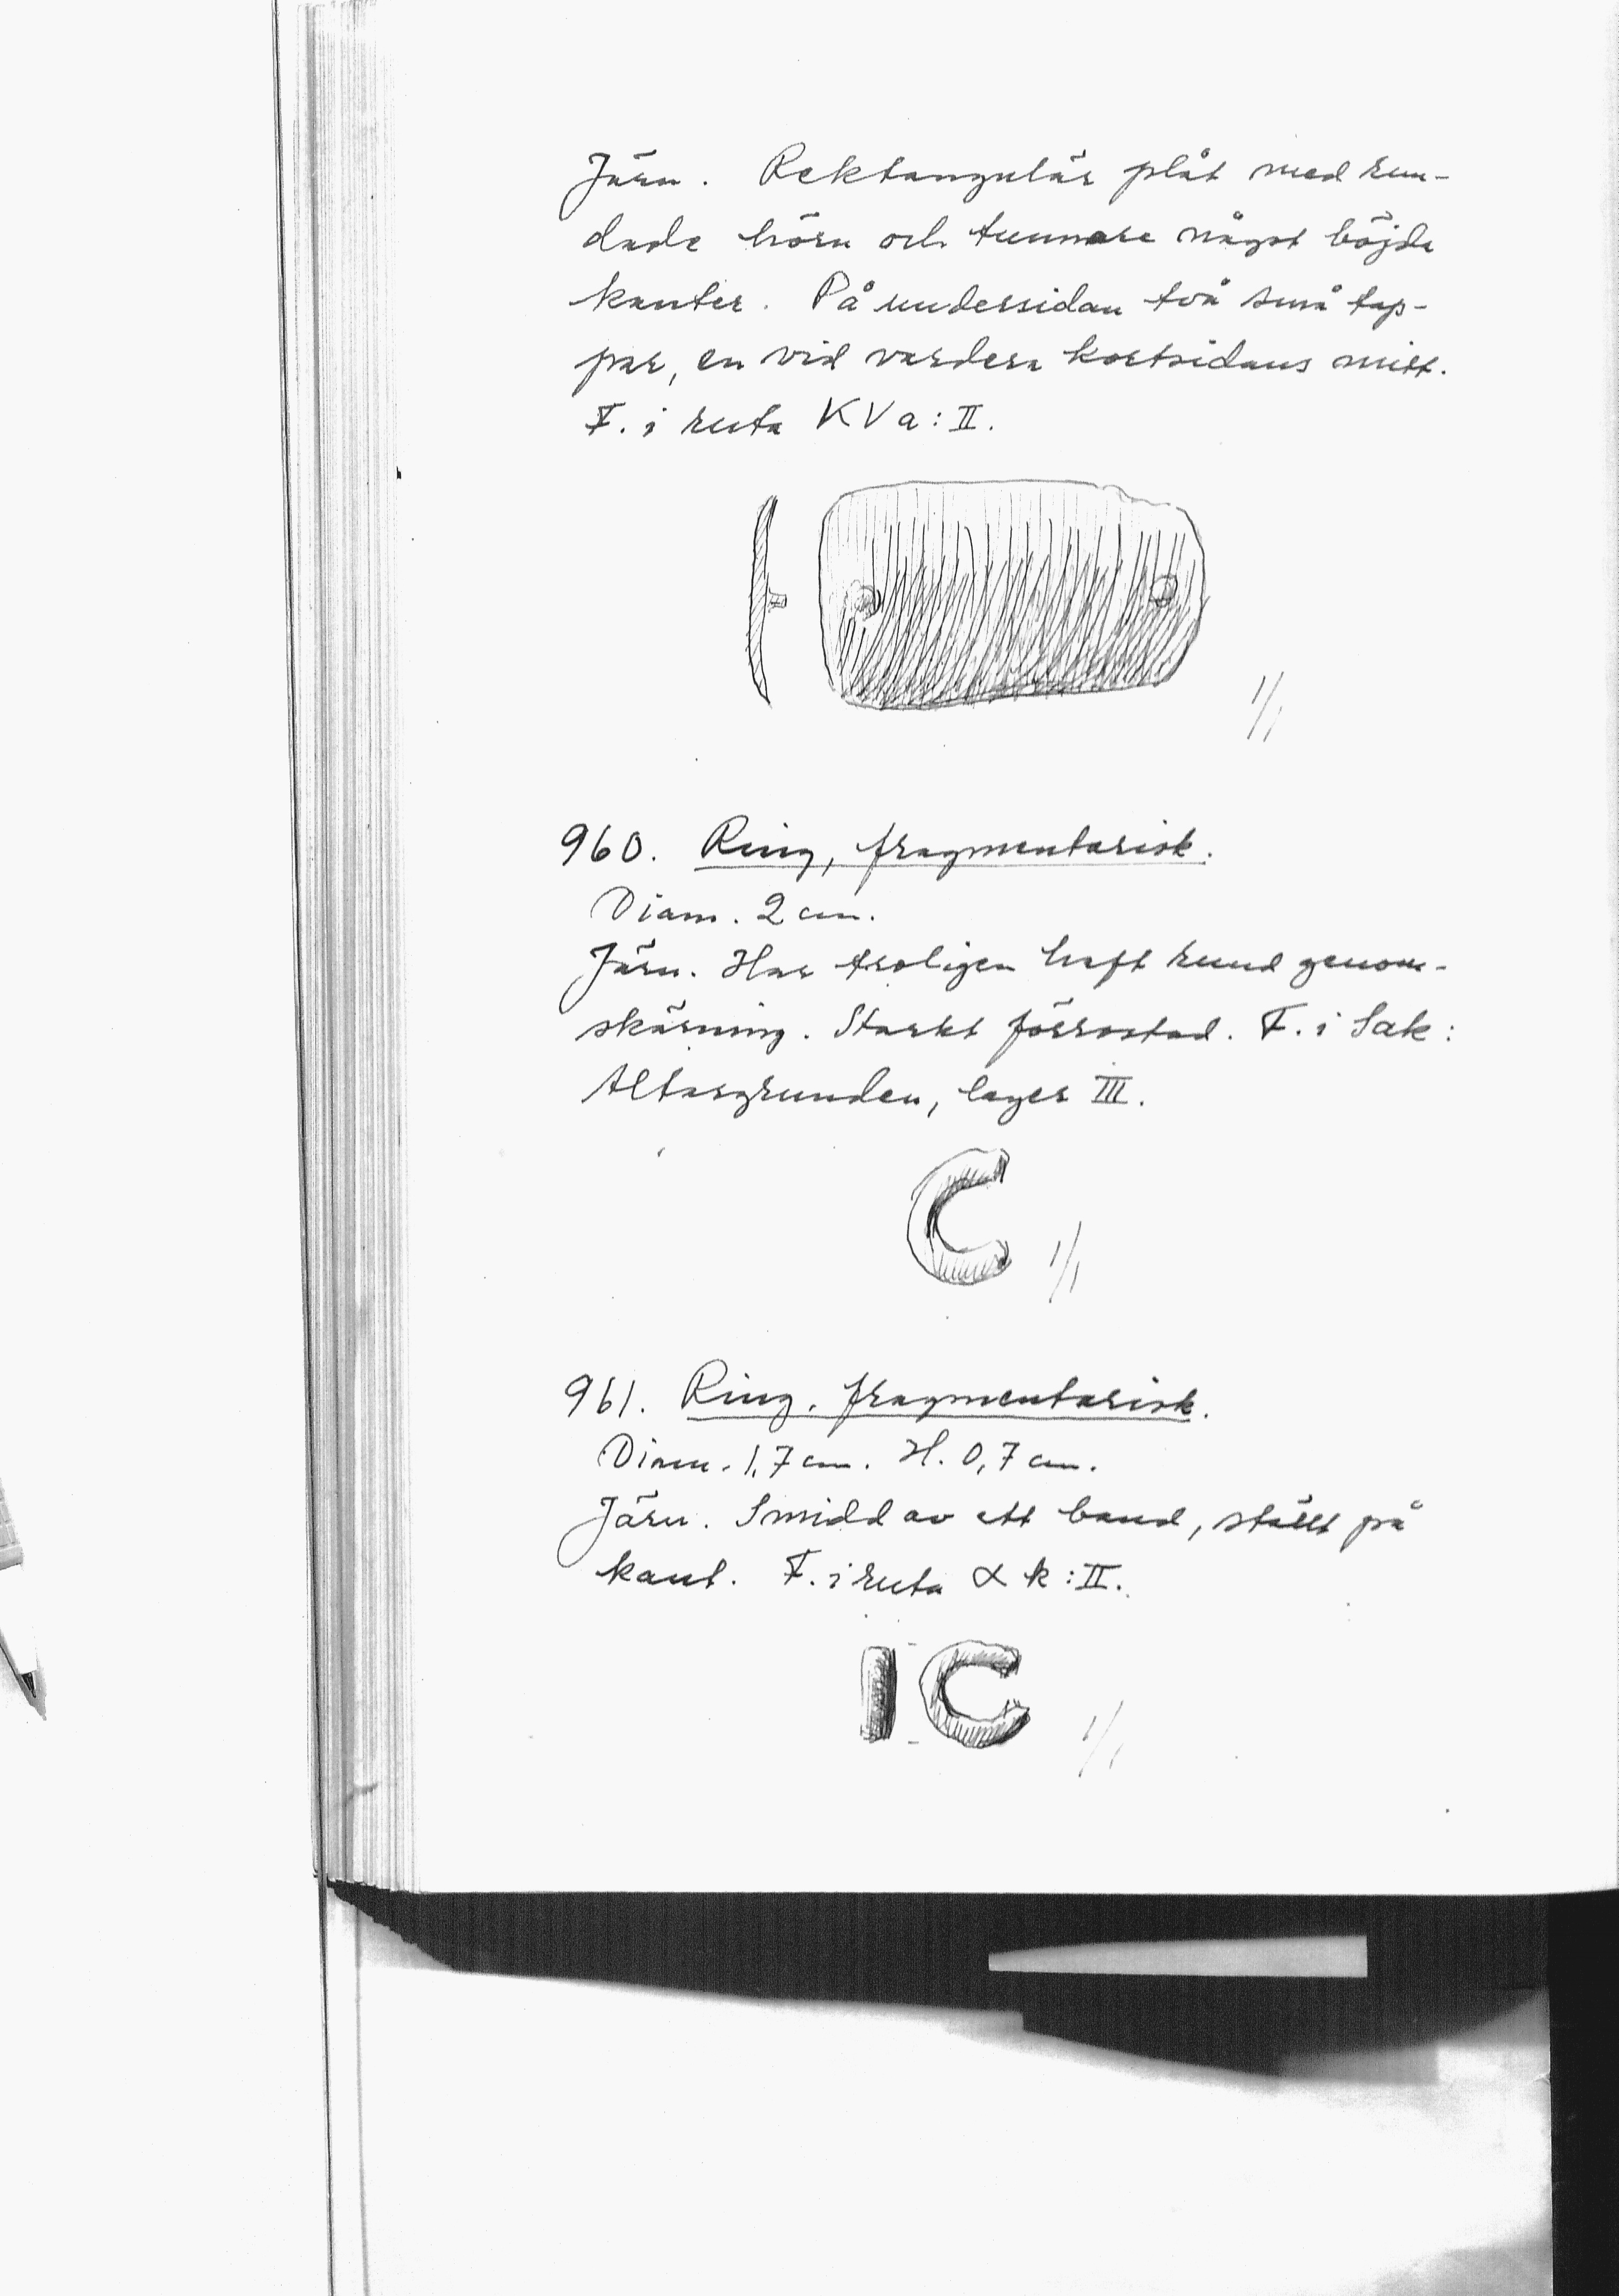 Järn. Rektangulär plåt med run-
dade hörn och tunnare något böjda
kanter. På undersidan två små tap-
par, en vid vardera kortsidans mitt.
F. i ruta KVa:II.
1/1
960. Ring, fragmentarisk.
Diam. 2 cm.
Järn. Har troligen haft rund genom-
skärning. Starkt förrostad. F. i Sak:
Altargrunden, lager III.
1/1
961. Ring, fragmentarisk.
Diam. 1,7 cm. H. 0,7 cm.
Järn. Smidd av ett band, ställt på
kant. F. i ruta α k:II.
1/1